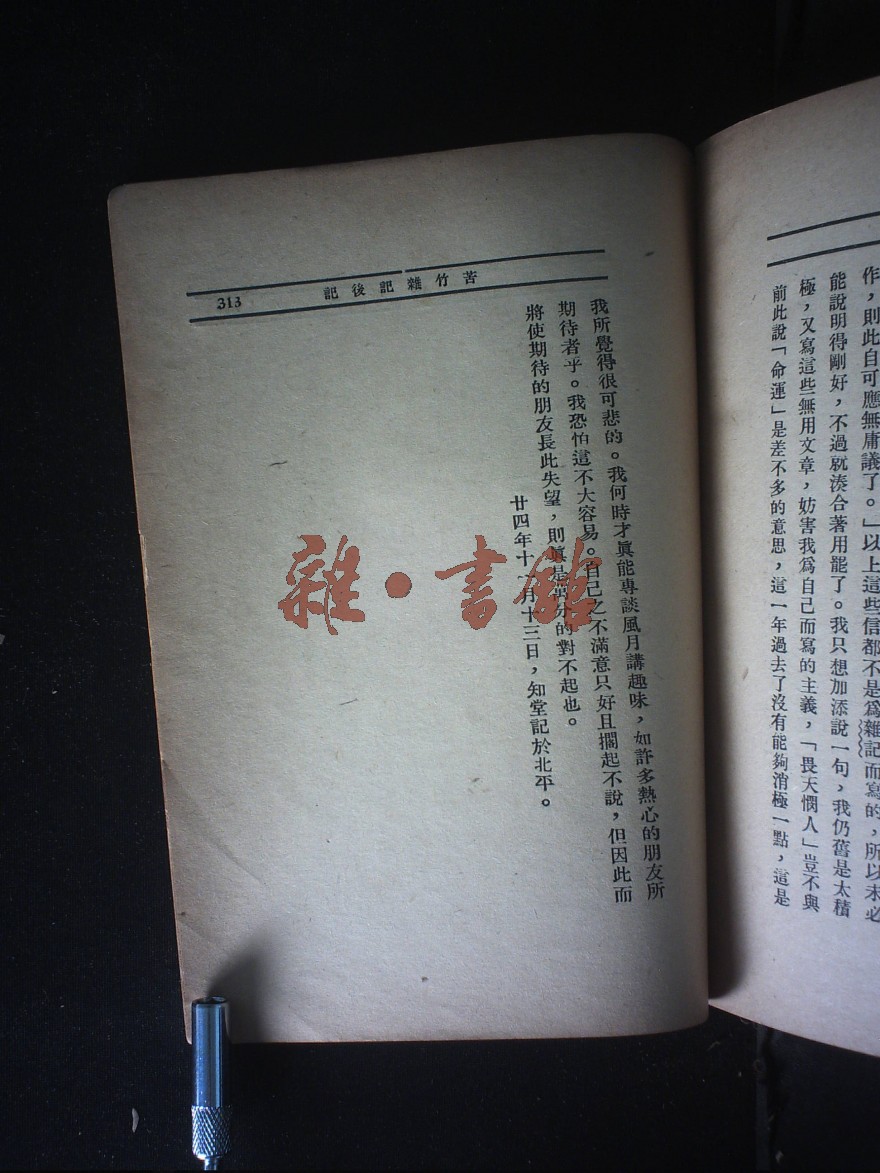 作，則此自可應無庸議了。」以上這些信都不是爲雜記而寫的，所以未必
能說明得剛好，不過就湊合著用罷了。我只想加添說一句，我仍舊是太積
極，又寫這些無用文章，妨害我爲自己而寫的主義，「畏天憫人」豈不與
前此說「命運」是差不多的意思，這一年過去了沒有能夠消極一點，這是
苦竹雜記後記
313
我所覺得很可悲的。我何時才眞能專談風月講趣味，如許多熱心的朋友所
期待者乎。我恐怕這不大容易。自己之不滿意只好且擱起不說，但因此而
將使期待的朋友長此失望，則眞是的對不起也。
廿四年十一月十三日，知堂記於北平。
雜·書館